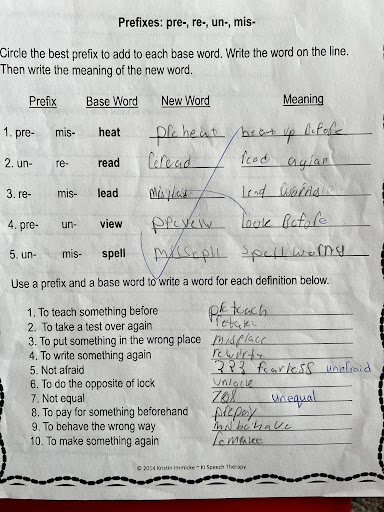 Prefixes: pre-, re-, un-, mis-
Circle the best prefix to add to each base word. Write the word on the line.
Then write the meaning of the new word.
Prefix Base Word New Word Meaning
1. pre- mis- heat preheat heat up Before
2. un- re- read reread read agian
3. re- mis- lead mislead lend
4. pre- un- view look Before
5. un- mis- spell spell
Use a prefix and a base word to write a word for each definition below.
1. To teach something before preteach
2. To take a test over again retake
3. To put something in the wrong place misplace
4. To write something again
5. Not afraid ??? fearless unafraid
6. To do the opposite of lock unlock
7. Not equal unequal
8. To pay for something beforehand prepay
9. To behave the wrong way
10. To make something again
© 2014 Kristin Immicke ~ KI Speech Therapy